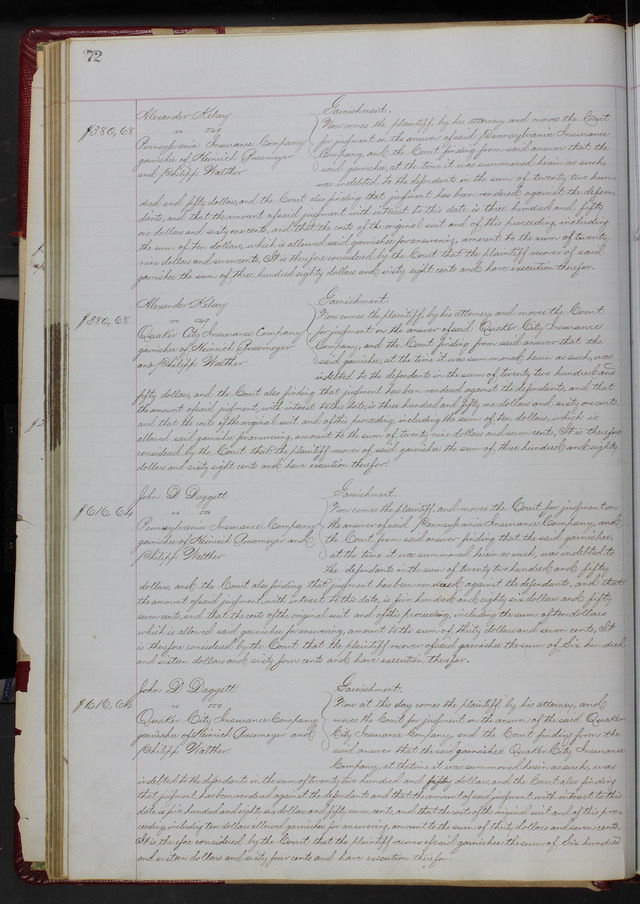 72
$380,68
Alexander Kelsey
vs
Pennsylvania Insurance Company
garnishee of Heinrich Ruesmeyer
and Philipp Walther
Garnishment.
Now comes the plaintiff, by his attorney, and moves the Court
for judgment on the answer of said Pennsylvania Insurance
Company, and the Court finding from said answer that the
said garnishee, at the time it was summoned herein as such,
was indebted to the defendants in the sum of twenty two hun-
dred and fifty dollars, and the Court also finding that judgment has been rendered against the defen-
dants, and that the amount of said judgment with interest to this date is three hundred and fifty
one dollars and sixty one cents, and that the costs of the original suit and of this proceeding, including
the sum of ten dollars, which is allowed said garnishee for answering, amount to the sum of twenty
nine dollars and seven cents, It is therefore considered by the Court that the plaintiff recover of said
garnishee the sum of three hundred eighty dollars and sixty eight cents and have execution therefor.
$380,68
Alexander Kelsey
vs
Quaker City Insurance Company
garnishee of Heinrich Ruesmeyer
and Philipp Walther
Garnishment.
Now comes the plaintiff, by his attorney and moves the Court
for judgment on the answer of said Quaker City Insurance
Company, and the Court finding from said answer that the
said garnishee, at the time it was summoned herein as such, was
indebted to the defendants in the sum of twenty two hundred and
fifty dollars, and the Court also finding that judgment has been rendered against the defendants, and that
the amount of said judgment, with interest to this date, is three hundred and fifty one dollars and sixty one cents,
and that the costs of the original suit and of this proceeding, including the sum of ten dollars, which is
allowed said garnishee for answering, amount to the sum of twenty nine dollars and seven cents, It is therefore
considered by the Court that the plaintiff recover of said garnishee the sum of, three hundred and eighty
dollars and sixty eight cents and have execution therefor.
$616,64
John D Daggett
vs
Pennsylvania Insurance Company
garnishee of Heinrich Ruesmeyer and
Philipp Walther
Garnishment.
Now comes the plaintiff, and moves the Court for judgment on
the answer of said Pennsylvania Insurance Company, and
the Court from said answer finding that the said garnishee,
at the time it was summoned herein as such, was indebted to
the defendants in the sum of twenty two hundred and fifty
dollars, and the Court also finding that judgment has been rendered against the defendants, and that
the amount of said judgment, with interest to this date, is five hundred and eighty six dollars and fifty
seven cents, and that the costs of the original suit and of this proceeding, including the sum of ten dollars
which is allowed said garnishee for answering, amount to the sum of thirty dollars and seven cents, It
is therefore considered by the Court that the plaintiff recover of said garnishee the sum of Six hundred
and sixteen dollars and sixty four cents and have execution therefor.
$616,64
John D Daggett
vs
Quaker City Insurance Company
garnishee of Heinrich Ruesmeyer and
Philipp Walther
Garnishment.
Now at this day comes the plaintiff, by his attorney, and
moves the Court for judgment on the answer of the said Quaker
City Insurance Company, and the Court finding from the
said answer that the said garnishee Quaker City Insurance
Company, at the time it was summoned herein as such, was
indebted to the defendants in the sum of twenty two hundred and fifty dollars, and the Court also finding
that judgment has been rendered against the defendants and that the amount of said judgment with interest to this
date is five hundred and eighty six dollars and fifty seven cents, and that the costs of the original suit and of this pro-
ceeding including ten dollars allowed garnishee for answering, amount to the sum of thirty dollars and seven cents.
It is therefore considered by the Court that the plaintiff recover of said garnishee the sum of Six hundred
and sixteen dollars and sixty four cents and have execution therefor.